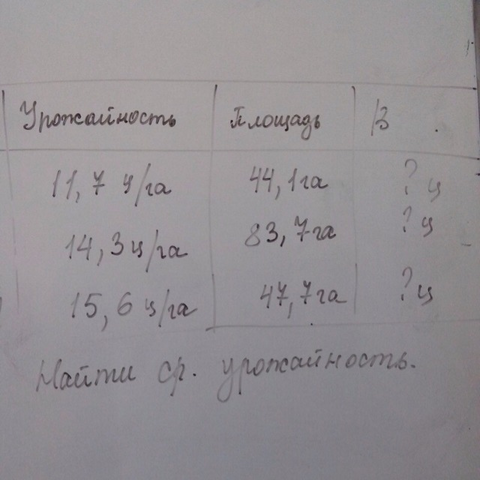 Урожайность Площадь В
11,7 ц/га 44,1га ? ц
14,3ц/га 83,7га ? ц
15,6 ц/га 47,7га ? ц
Найти ср. урожайность.